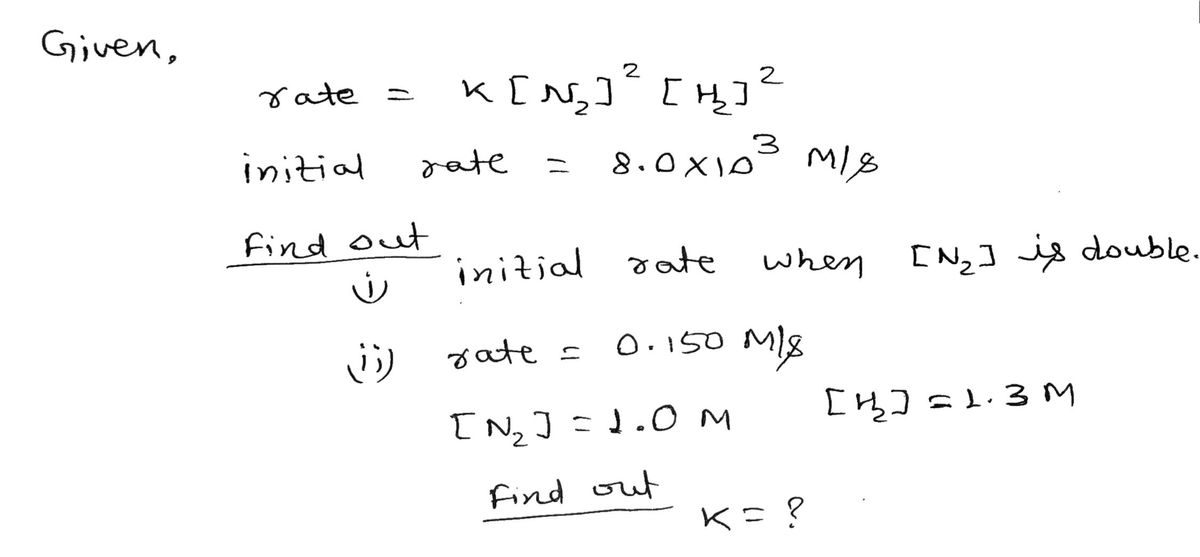 Given,
rate = K [N₂]² [H₂]²
initial rate = 8.0×10³ M/s
Find out
i) initial rate when [N₂] is double.
ii) rate = 0.150 M/s
[N₂] = 1.0 M [H₂] = 1.3 M
Find out K = ?